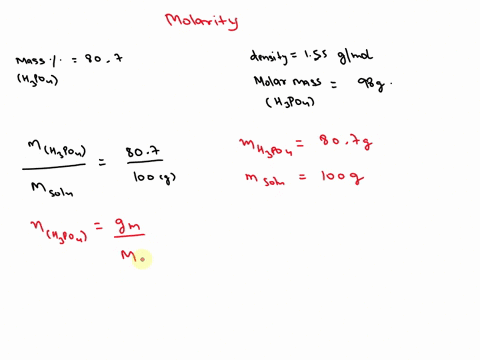 Molarity
Mass % = 80.7
(H3PO4)
density = 1.55 g/mol
Molar mass = 98g.
(H3PO4)
M(H3PO4) / Msoln = 80.7 / 100(g)
mH3PO4 = 80.7g
m soln = 100g
n(H3PO4) = gm / M.